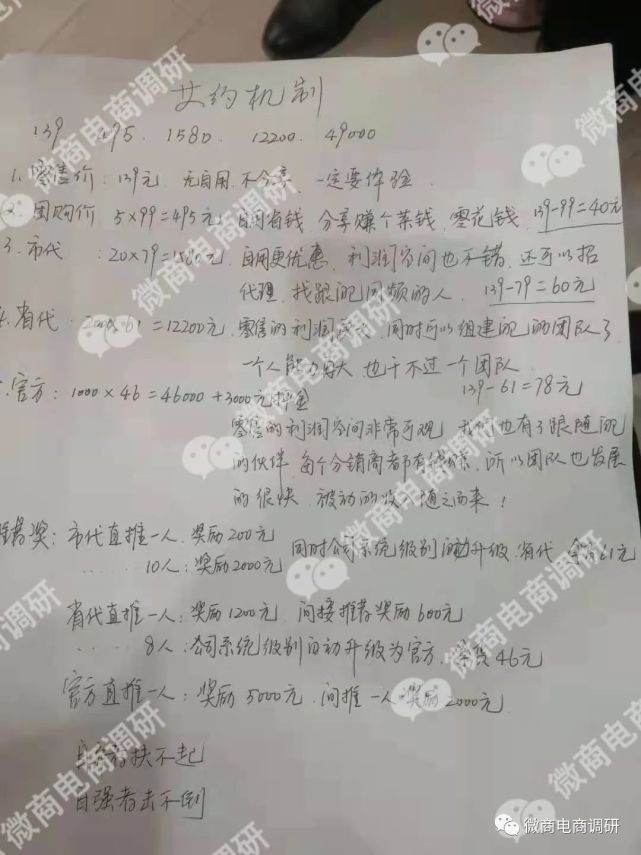 女约机制
139 495. 1580. 12200. 49000
1. 零售价:139元. 先自用.不分享. 一定要体验.
2. 团购价 5×99=495元. 自用省钱 分享赚个菜钱. 零花钱. 139-99=40元
3. 市代 :20×79=1580元. 自用更优惠. 利润空间也不错. 还可以招
代理. 找跟我同频的人. 139-79=60元
4. 省代: 200×61=12200元. 零售的利润更大. 同时可以组建我的团队了.
一个人能力再大 也干不过一个团队.
139-61=78元
官方: 1000×46=46000+3000元押金
零售的利润空间非常可观. 我们也有了跟随我
的伙伴. 每个分销商都有钱赚. 所以团队也发展
的很快. 被动的收入随之而来!
推荐奖: 市代直推一人. 奖励200元
...... 10人: 奖励2000元 同时公司系统级别自动升级.省代 拿货61元
省代直推一人: 奖励1200元. 间接推荐奖励600元
.... 8人: 公司系统级别自动升级为官方. 拿货46元
官方直推一人: 奖励5000元. 间推一人奖励2000元
者扶不起
自强者击不倒
微商电商调研